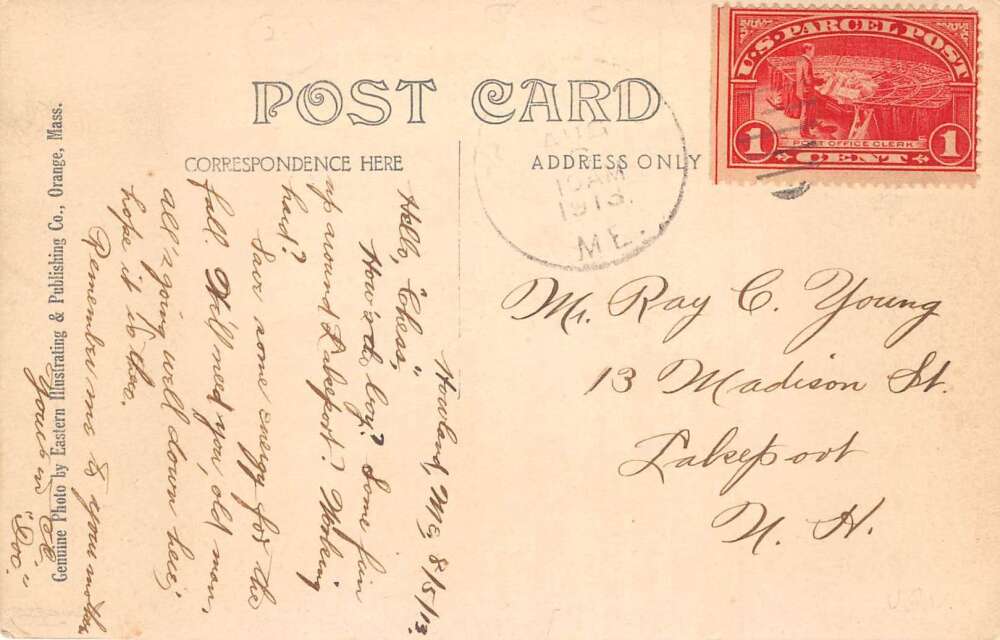 POST CARD
CORRESPONDENCE HERE
ADDRESS ONLY
U.S. PARCEL POST
1 1
POST OFFICE CLERK
CENT
AUG
10 AM
1913
ME.
Mr. Ray C. Young
13 Madison St.
Lakeport
N. H.
Howland, Me, 8/5/13.
Hello, "Chess,"
How'rdo, boy? Some fun
up around Lakeport? Working
hard?
Save some energy for the
fall. We'll need you, old man,
all's going well down here;
hope it is there.
Remember me to your mother
Yours in
"Doc."
Genuine Photo by Eastern Illustrating & Publishing Co., Orange, Mass.